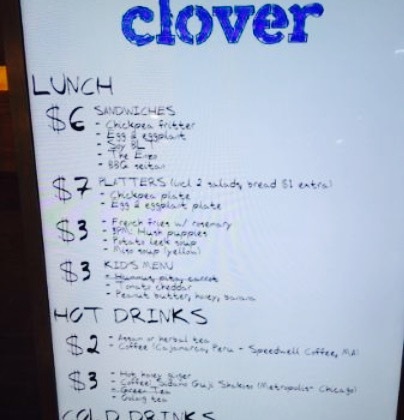 clover
LUNCH
$6 SANDWICHES
- Chickpea fritter
- Egg & eggplant
- Soy BLT
- The
- BBQ seitan
$7 PLATTERS (incl 2 salads, bread $1 extra)
- Chickpea plate
- Egg & eggplant plate
$3 - French fries w/ rosemary
- 3PM: Hush puppies
- Potato leek soup
- Miso soup (yellow)
$3 KID'S MENU
- Hummus, pita, carrot
- Tomato cheddar
- Peanut butter, honey, banana
HOT DRINKS
$2 - Assam or herbal tea
- Coffee (Cajamarca, Peru - Speedwell Coffee, MA)
$3 - Hot honey ginger
- Coffee (Sidamo Guji Shakiso (Metropolis - Chicago)
- Green tea
- Oolong tea
COLD DRINKS